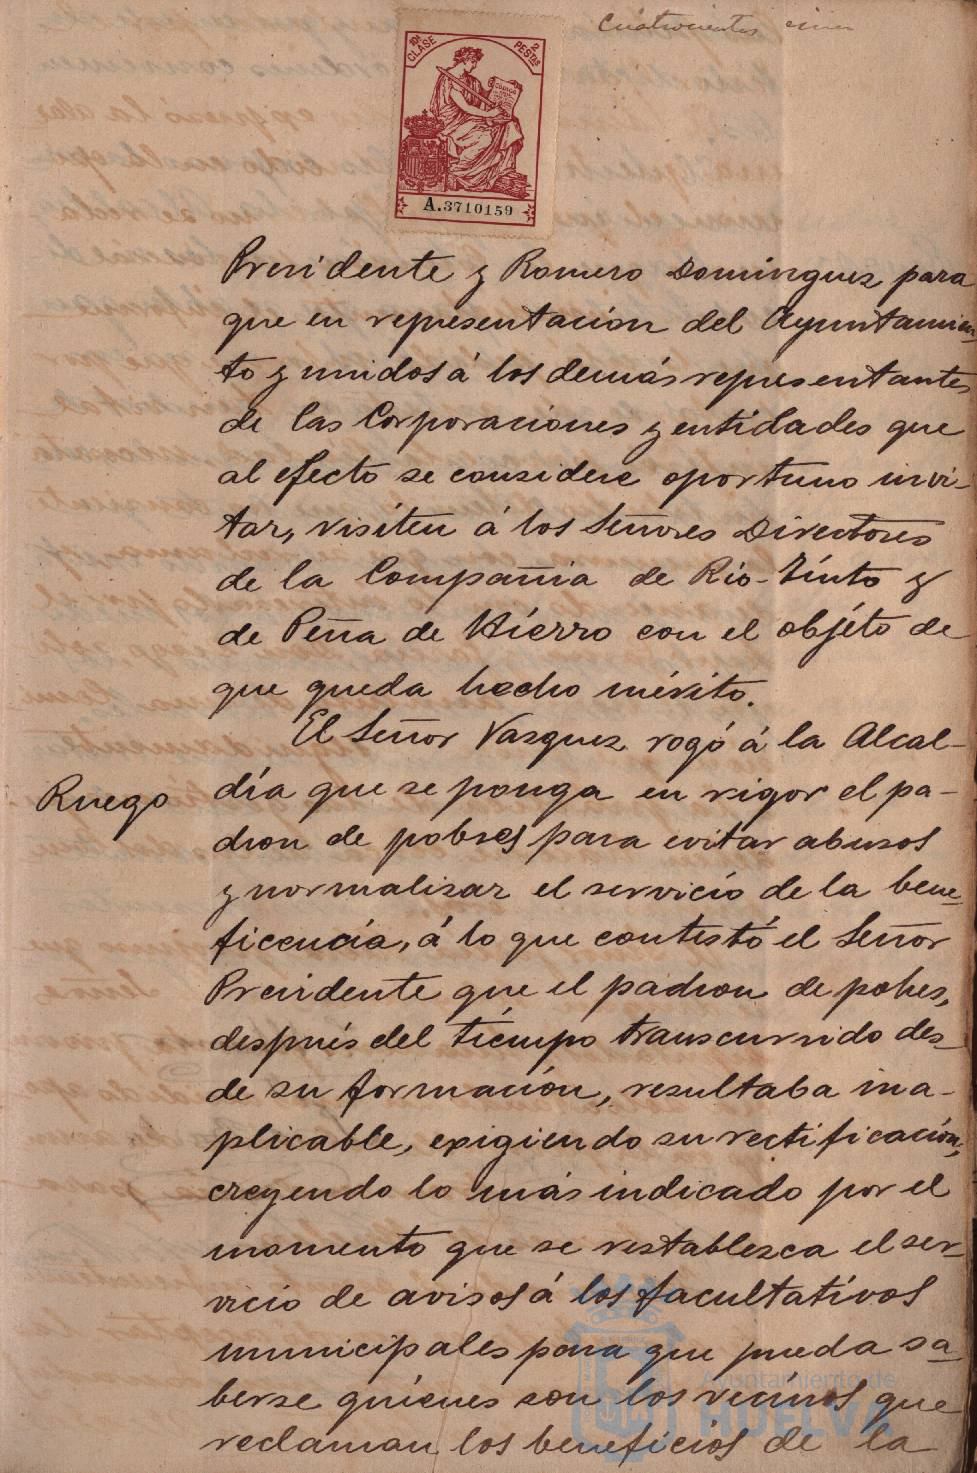 Cuatrocientos cinco
10ª CLASE
2 PESTAS
A.3710159
Presidente y Romero Dominguez para
que en representacion del Ayuntamien-
to y unidos á los demás representantes
de las Corporaciones y entidades que
al efecto se considere oportuno invi-
tar, visiten á los Señores Directores
de la Compañia de Rio-Tinto y
de Peña de Hierro con el objéto de
que queda hecho mérito.
El Señor Vazquez rogó á la Alcal-
Ruego
día que se ponga en vigor el pa-
dron de pobres para evitar abusos
y normalizar el servicio de la bene-
ficencia, á lo que contestó el Señor
Presidente que el padron de pobres,
después del tiempo transcurrido des-
de su formación, resultaba ina-
plicable, exigiendo su rectificación,
creyendo lo más indicado por el
momento que se restablezca el ser-
vicio de avisos á los facultativos
municipales para que pueda sa-
berse quienes son los vecinos que
reclaman los beneficios de la
Ayuntamiento de
HUELVA